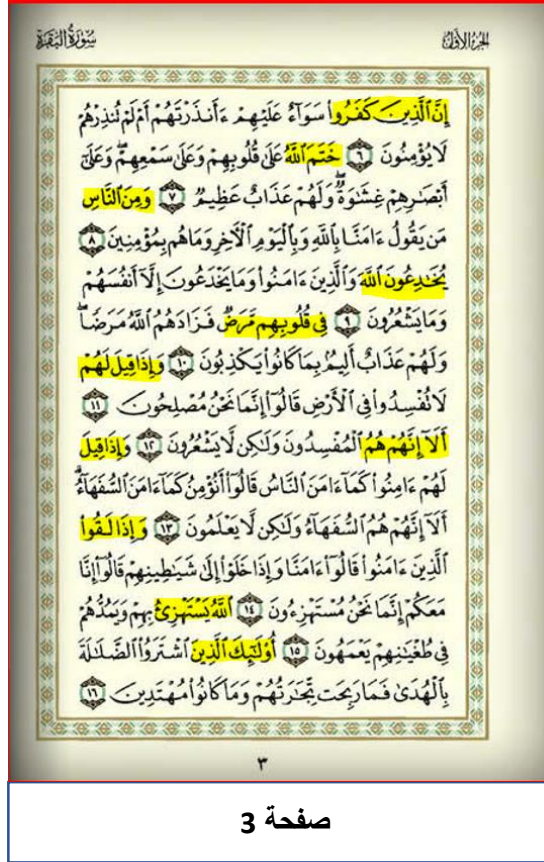 سُورَةُ البَقَرَةِ
الجُزْءُ الأَوَّلُ
إِنَّ ٱلَّذِينَ كَفَرُوا۟ سَوَآءٌ عَلَيْهِمْ ءَأَنذَرْتَهُمْ أَمْ لَمْ تُنذِرْهُمْ
لَا يُؤْمِنُونَ ٦ خَتَمَ ٱللَّهُ عَلَىٰ قُلُوبِهِمْ وَعَلَىٰ سَمْعِهِمْ ۖ وَعَلَىٰٓ
أَبْصَـٰرِهِمْ غِشَـٰوَةٌ ۖ وَلَهُمْ عَذَابٌ عَظِيمٌ ٧ وَمِنَ ٱلنَّاسِ
مَن يَقُولُ ءَامَنَّا بِٱللَّهِ وَبِٱلْيَوْمِ ٱلْـَٔاخِرِ وَمَا هُم بِمُؤْمِنِينَ ٨
يُخَـٰدِعُونَ ٱللَّهَ وَٱلَّذِينَ ءَامَنُوا۟ وَمَا يَخْدَعُونَ إِلَّآ أَنفُسَهُمْ
وَمَا يَشْعُرُونَ ٩ فِى قُلُوبِهِم مَّرَضٌ فَزَادَهُمُ ٱللَّهُ مَرَضًا ۖ
وَلَهُمْ عَذَابٌ أَلِيمٌۢ بِمَا كَانُوا۟ يَكْذِبُونَ ١٠ وَإِذَا قِيلَ لَهُمْ
لَا تُفْسِدُوا۟ فِى ٱلْأَرْضِ قَالُوٓا۟ إِنَّمَا نَحْنُ مُصْلِحُونَ ١١
أَلَآ إِنَّهُمْ هُمُ ٱلْمُفْسِدُونَ وَلَـٰكِن لَّا يَشْعُرُونَ ١٢ وَإِذَا قِيلَ
لَهُمْ ءَامِنُوا۟ كَمَآ ءَامَنَ ٱلنَّاسُ قَالُوٓا۟ أَنُؤْمِنُ كَمَآ ءَامَنَ ٱلسُّفَهَآءُ ۗ
أَلَآ إِنَّهُمْ هُمُ ٱلسُّفَهَآءُ وَلَـٰكِن لَّا يَعْلَمُونَ ١٣ وَإِذَا لَقُوا۟
ٱلَّذِينَ ءَامَنُوا۟ قَالُوٓا۟ ءَامَنَّا وَإِذَا خَلَوْا۟ إِلَىٰ شَيَـٰطِينِهِمْ قَالُوٓا۟ إِنَّا
مَعَكُمْ إِنَّمَا نَحْنُ مُسْتَهْزِءُونَ ١٤ ٱللَّهُ يَسْتَهْزِئُ بِهِمْ وَيَمُدُّهُمْ
فِى طُغْيَـٰنِهِمْ يَعْمَهُونَ ١٥ أُو۟لَـٰٓئِكَ ٱلَّذِينَ ٱشْتَرَوُا۟ ٱلضَّلَـٰلَةَ
بِٱلْهُدَىٰ فَمَا رَبِحَت تِّجَـٰرَتُهُمْ وَمَا كَانُوا۟ مُهْتَدِينَ ١٦
٣
صفحة 3